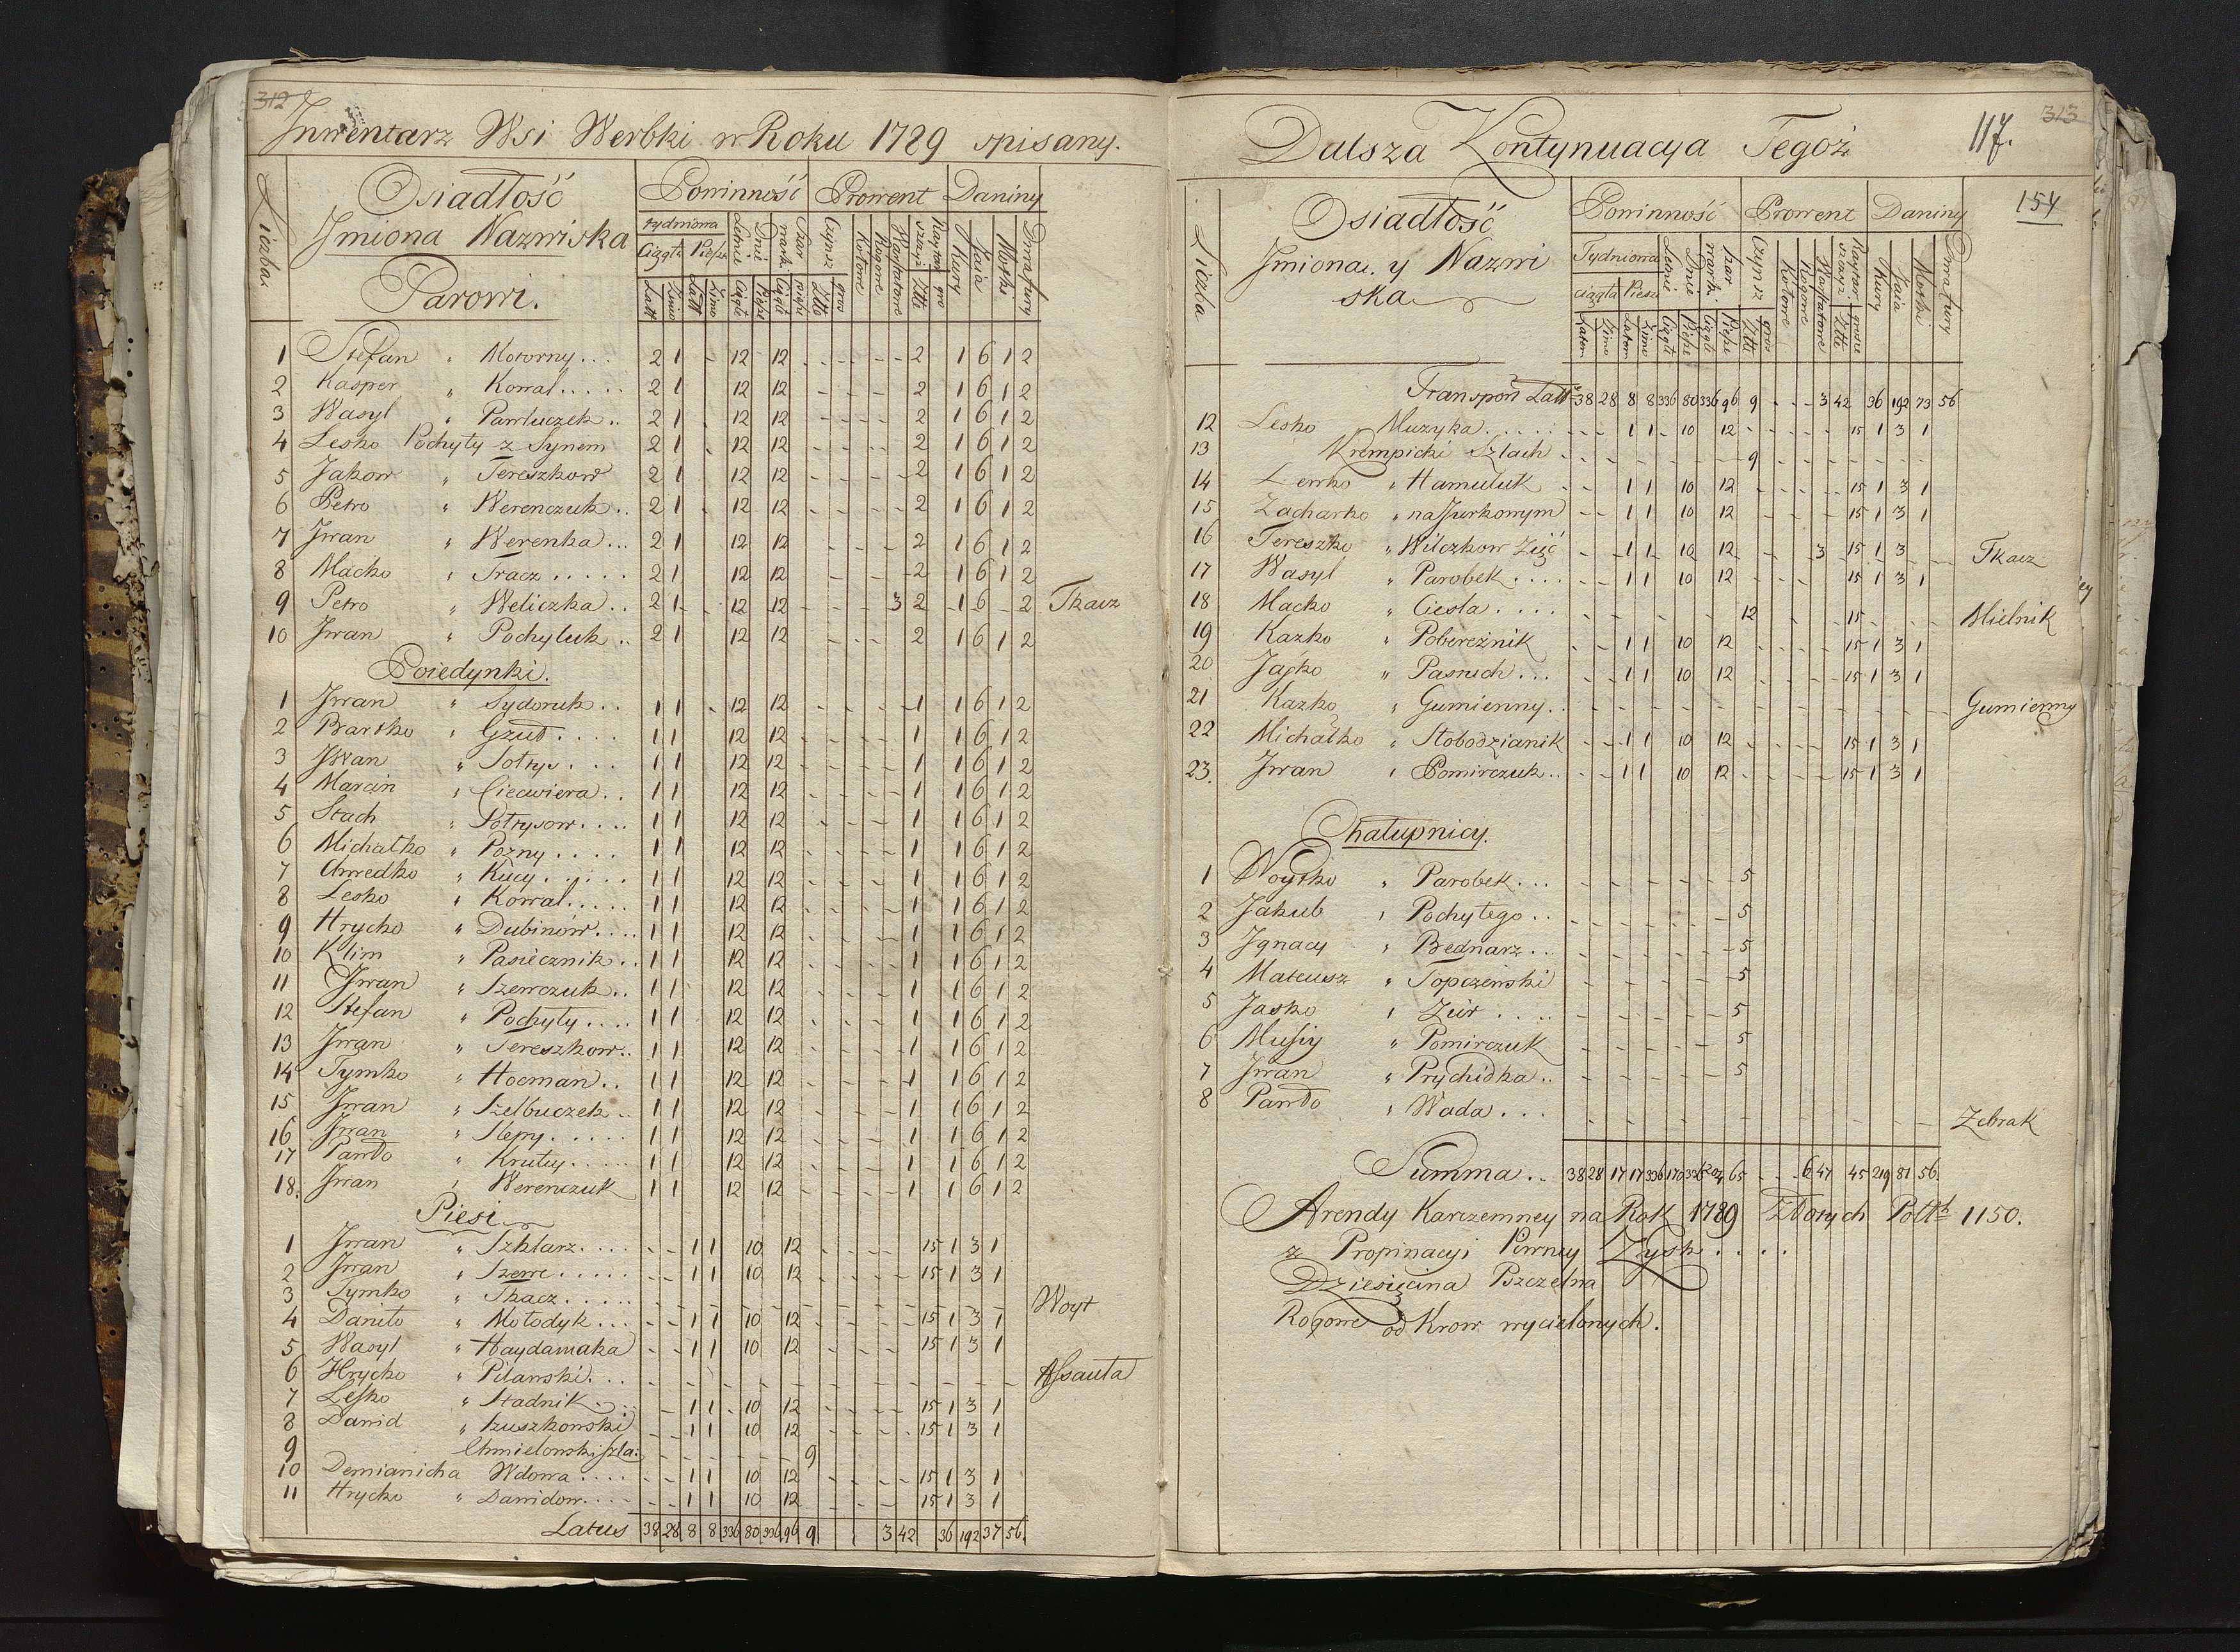 312
Inwentarz Wsi Werbki w Roku 1789 spisany.
Liczba
Osiadłość
Jmiona Nazwiska
Powinność Prowent Daniny
tydniowa
Ciągła Piesza
Parowi.
1 Stefan " Motorny... 2 1 - 12 12 - - - - 2 1 6 1 2
2 Kasper " Kowal..... 2 1 12 12 - - - 2 1 6 1 2
3 Wasyl " Pawluczek.. 2 1 - 12 12 - - - - 2 1 6 1 2
4 Lesko Pochyły z Synem 2 1 - 12 12 - - - - 2 1 6 1 2
5 Jakow " Tereszkow 2 1 12 12 - - - - 2 1 6 1 2
6 Petro " Werenczuk.. 2 1 - 12 12 - - - - 2 1 6 1 2
7 Jwan " Werenka... 2 1 12 12 - - - 2 1 6 1 2
8 Macko " Tracz..... 2 1 12 12 - - - 2 1 6 1 2
9 Petro " Weliczka.. 2 1 - - 12 12 - - - - 3 2 - 1 6 - 2 Tkacz
10 Jwan " Pochyluk.. 2 1 12 12 - - - 2 1 6 1 2
Poiedynki.
1 Jwan " Sydoruk.. 1 1 - 12 12 - - - - 1 1 6 1 2
2 Bartko " Gzud.... 1 1 12 12 - - - - 1 1 6 1 2
3 Jwan " Sołtys... 1 1 12 12 - - - - 1 1 6 1 2
4 Marcin " Ciecwiera.. 1 1 12 12 - - - - 1 1 6 1 2
5 Stach " Sołtysow.... 1 1 12 12 - - - 1 1 6 1 2
6 Michałko " Pozny.... 1 1 12 12 - - - - 1 1 6 1 2
7 Chwedko " Kucy...... 1 1 12 12 - - - - 1 1 6 1 2
8 Lesko " Kowal..... 1 1 12 12 - - - - 1 1 6 1 2
9 Hrycko " Dubinow.... 1 1 12 12 - - - - 1 1 6 1 2
10 Klim " Pasiecznik.. 1 1 12 12 - - - - 1 1 6 1 2
11 Jwan " Szewczuk.. 1 1 12 12 - - - - 1 1 6 1 2
12 Stefan " Pochyły.... 1 1 12 12 - - - - 1 1 6 1 2
13 Jwan " Tereszkow.. 1 1 12 12 - - - - 1 1 6 1 2
14 Tymko " Hocman.. 1 1 12 12 - - - - 1 1 6 1 2
15 Jwan " Szelbuczek.. 1 1 12 12 - - - - 1 1 6 1 2
16 Jwan " Slepy..... 1 1 12 12 - - - - 1 1 6 1 2
17 Pawło " Kruty..... 1 1 12 12 - - - - 1 1 6 1 2
18. Jwan " Werenczuk 1 1 12 12 - - - - 1 1 6 1 2
Piesi
1 Jwan " Szklarz.... - - 1 1 10 12 - - - - 15 1 3 1
2 Jwan " Szewc..... - - 1 1 10 12 - - - - 15 1 3 1
3 Tymko " Tkacz..... - - - - - - - - - - Woyt
4 Daniło " Mołodyk... - - 1 1 10 12 - - - - 15 1 3 1
5 Wasyl " Haydamaka - - 1 1 10 12 - - - - 15 1 3 1
6 Hrycko " Pilawski... - - - - - - - - - - Assauła
7 Lesko " Stadnik... - - 1 1 - 10 12 - - - - 15 1 3 1
8 Dawid - - 1 1 10 12 - - - - 15 1 3 1
9 Chmielowski Szla: - - - - - - - 9
10 Demianicha Wdowa.... - - 1 1 10 12 - - - - 15 1 3 1
11 Hrycko " Dawidow.... - - 1 1 10 12 - - - - 15 1 3 1
Latus 38 28 8 8 336 80 336 96 9 3 42 36 192 37 56.
313
117.
154
Dalsza Kontynuacya Tegoż
Liczba
Osiadłość
Jmiona. y Nazwi
ska
Powinność Prowent Daniny
Tydniowa
ciągła Piesa
Transport Latt 38 28 8 8 336 80 336 96 9 - - - 3 42 36 192 73 56
12 Lesko " Muzyka..... - - 1 1 - 10 12 - - - - - 15 1 3 1
13 Krempicki Szlach - - - - - - - - 9 - - - - - - -
14 Lewko " Hamuluk - - 1 1 10 12 - - - - - 15 1 3 1
15 Zacharko " na Jurkowym - - 1 1 10 12 - - - - 15 1 3 1
16 Tereszko " Wilczkow Zięć - - 1 1 - 10 12 - - 3 15 1 3 - - Tkacz
17 Wasyl " Parobek.... - - 1 1 10 12 - - - 15 1 3 1
18 Macko " Ciesla.... - - - - - - - 12 - - - 15 - - - - Mielnik
19 Kazko " Pobereznik - - 1 1 10 12 - - - - 15 1 3 1
20 Jaśko " Pastuch... - - 1 1 10 12 - - - - 15 1 3 1
21 Kazko " Gumienny.. - - - - - - - - - - - - Gumienny
22 Michałko " Słobodzianik - - 1 1 10 12 - - - - 15 1 3 1
23. Jwan " Pomirczuk.. - - 1 1 10 12 - - - - 15 1 3 1
Chałupnicy.
1 Woytko " Parobek... - - - - - - - 5
2 Jakub " Pochyłego.. - - - - - - - 5
3 Jgnacy " Bednarz... - - - - - - - 5
4 Mateusz " Topczeński - - - - - - 5
5 Jasko " Zur.... - - - - - - - 5
6 Musiy " Pomirczuk - - - - - - - 5
7 Jwan " Prychidka.. - - - - - - - 5
8 Pawło " Wada... - - - - - - - - - - Zebrak
Summa.. 38 28 17 17 336 170 336 204 65 - - - 6 47 45 219 81 56.
Arendy Karczemney na Rok 1789 Złotych Polł 1150.
z Propinacyi Piwney Zysk....
Dziesięcina Pszczelna
Rogowe od Krow wycielonych.